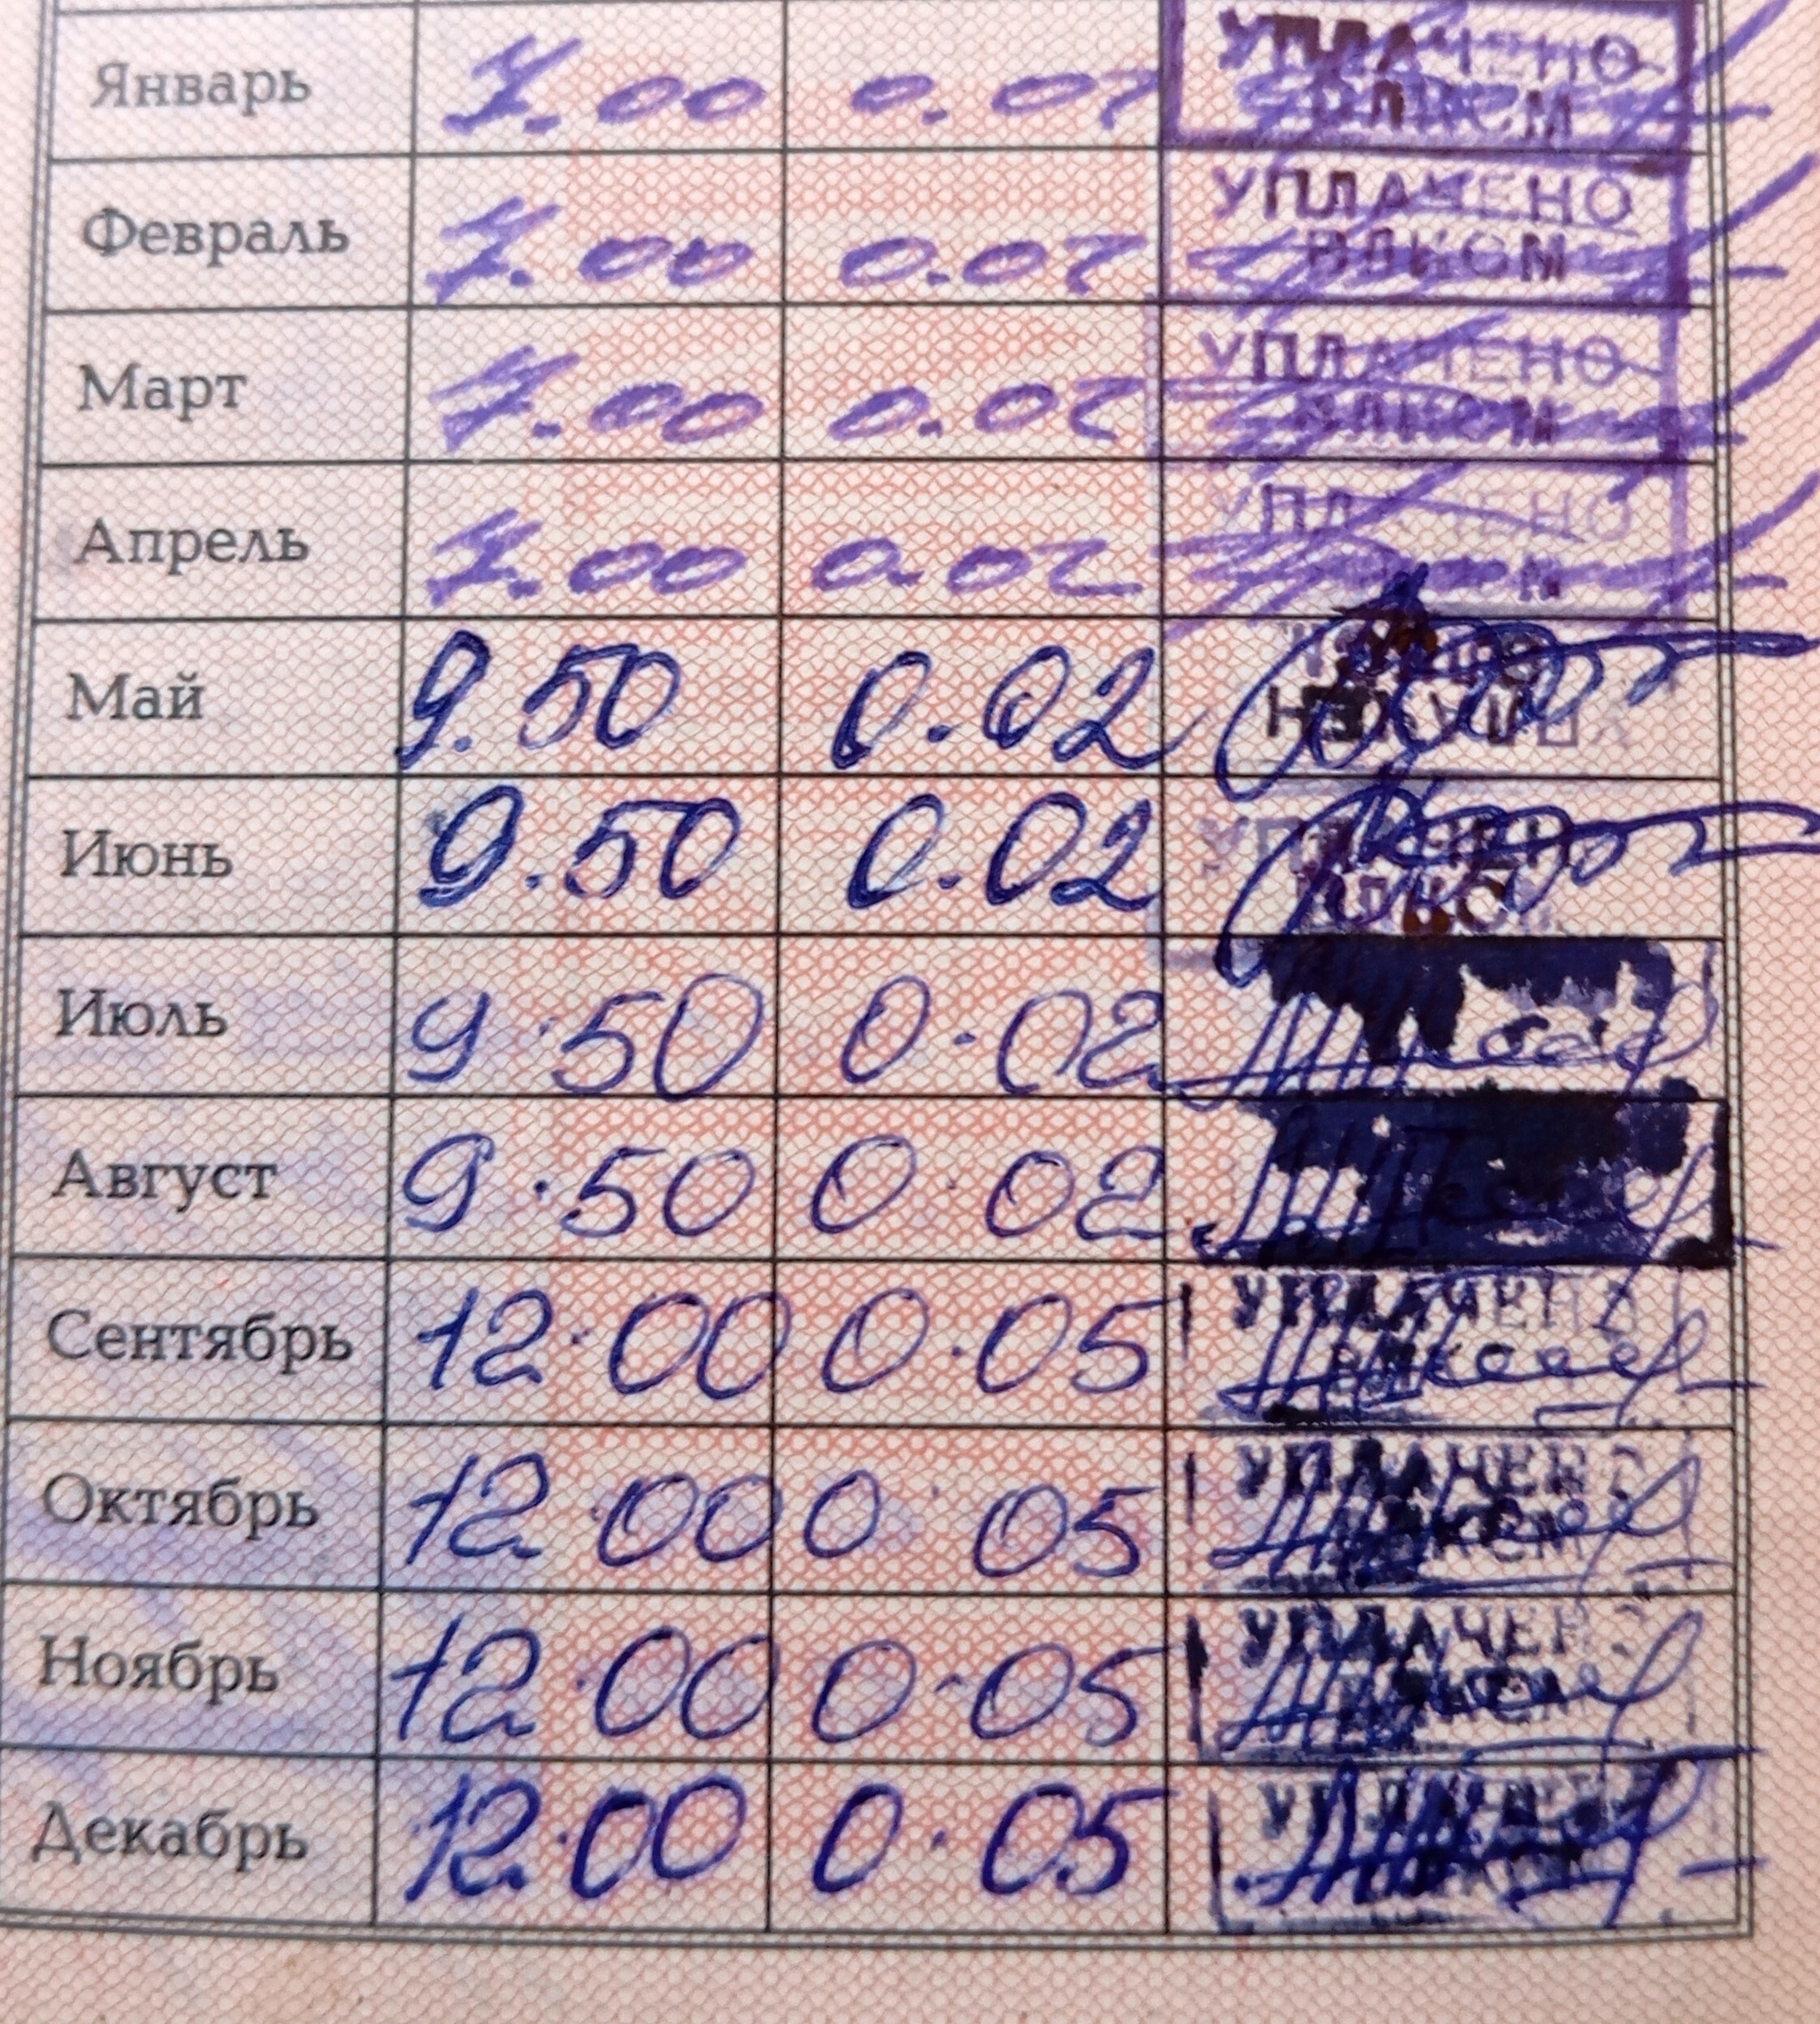 Январь 7.00 0.02 УПЛАЧЕНО ВЛКСМ
Февраль 7.00 0.02 УПЛАЧЕНО ВЛКСМ
Март 7.00 0.02 УПЛАЧЕНО ВЛКСМ
Апрель 7.00 0.02 УПЛАЧЕНО
Май 9.50 0.02
Июнь 9.50 0.02 УПЛАЧЕНО ВЛКСМ
Июль 9.50 0.02
Август 9.50 0.02
Сентябрь 12.00 0.05 УПЛАЧЕНО ВЛКСМ
Октябрь 12.00 0.05 УПЛАЧЕНО ВЛКСМ
Ноябрь 12.00 0.05 УПЛАЧЕНО ВЛКСМ
Декабрь 12.00 0.05 УПЛАЧЕНО